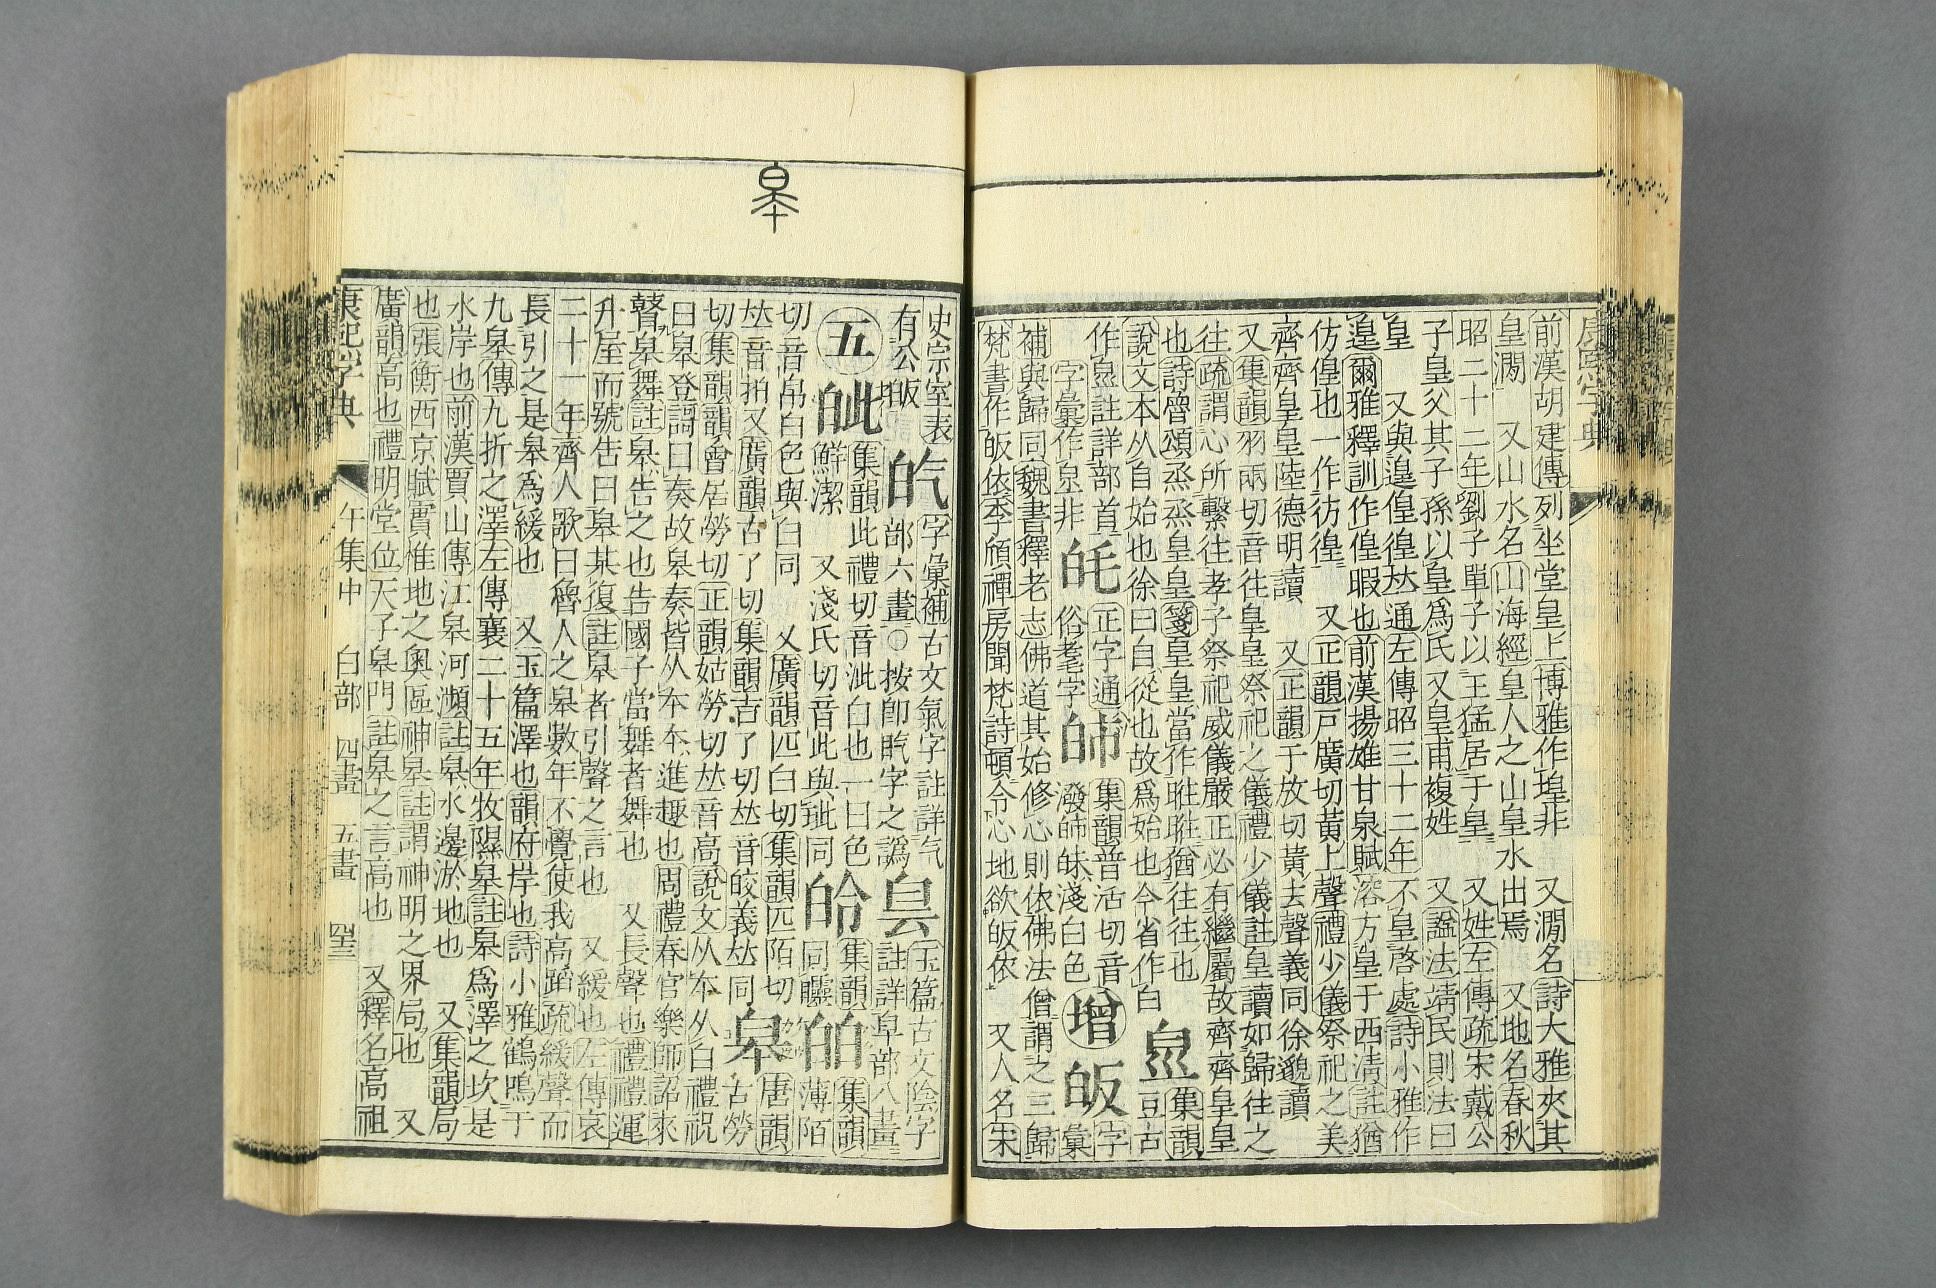 前漢胡建傳列坐堂皇上博雅作堭非　又澗名詩大雅夾其
皇澗　又山水名山海經皇人之山皇水出焉　又地名春秋
昭二十二年劉子單子以王猛居于皇　又姓左傳疏宋戴公
子皇父其子孫以皇爲氏又皇甫複姓　又諡法靖民則法曰
皇　又與遑偟徨𠀤通左傳昭三十二年不皇啓處詩小雅作
遑爾雅釋訓作偟暇也前漢揚雄甘泉賦溶方皇于西淸註猶
仿偟也一作彷徨　又正韻戸廣切黃上聲禮少儀祭祀之美
齊齊皇皇陸德明讀　又正韻于放切黃去聲義同徐邈讀
又集韻羽兩切音往皇皇祭祀之儀禮少儀註皇讀如歸往之
往疏謂心所繫往孝子祭祀威儀嚴正必有繼屬故齊齊皇皇
也詩魯頌烝烝皇皇箋皇皇當作暀暀猶往往也
說文本从自始也徐曰自從也故爲始也今省作白
皇 集韻豆古
作皀註詳部首
字彙作㿝非
㿜 正字通俗耄字
㿚 集韻普活切音潑㿚昧淺白色
增
皈 字彙
補與歸同魏書釋老志佛道其始修心則依佛法僧謂之三歸
梵書作皈依李頎禪房聞梵詩頓令心地欲皈依　又人名宋
史宗室表
有公皈
增
㿟 字彙補古文氣字註詳气
部六畫○按卽盵字之譌
㿝 玉篇古文陰字
註詳阜部八畫
五
皉 集韻此禮切音泚白也一曰色
鮮潔　又淺氏切音此與玼同
皊 集韻
同㿖
皅
皛 集韻薄陌
切音帛白色與白同　又廣韻匹白切集韻匹陌切
𠀤音拍又廣韻古了切集韻吉了切𠀤音皎義𠀤同
皋
唐韻古勞
切集韻韻會居勞切正韻姑勞切𠀤音高說文从夲从白禮祝
曰皋登謌曰奏故皋奏皆从夲夲進趣也周禮春官樂師詔來
瞽皋舞註皋告之也告國子當舞者舞也　又長聲也禮禮運
升屋而號告曰皋某復註皋者引聲之言也　又緩也左傳哀
二十一年齊人歌曰魯人之皋數年不覺使我高蹈疏緩聲而
長引之是皋爲緩也　又玉篇澤也韻府岸也詩小雅鶴鳴于
九皋傳九折之澤左傳襄二十五年牧隰皋註皋爲澤之坎是
水岸也前漢賈山傳江皋河瀕註皋水邊淤地也　又集韻局
也張衡西京賦實惟地之奧區神皋註謂神明之界局也　又
廣韻高也禮明堂位天子皋門註皋之言高也　又釋名高祖
康熙字典　午集中　白部　四畫　五畫
皋